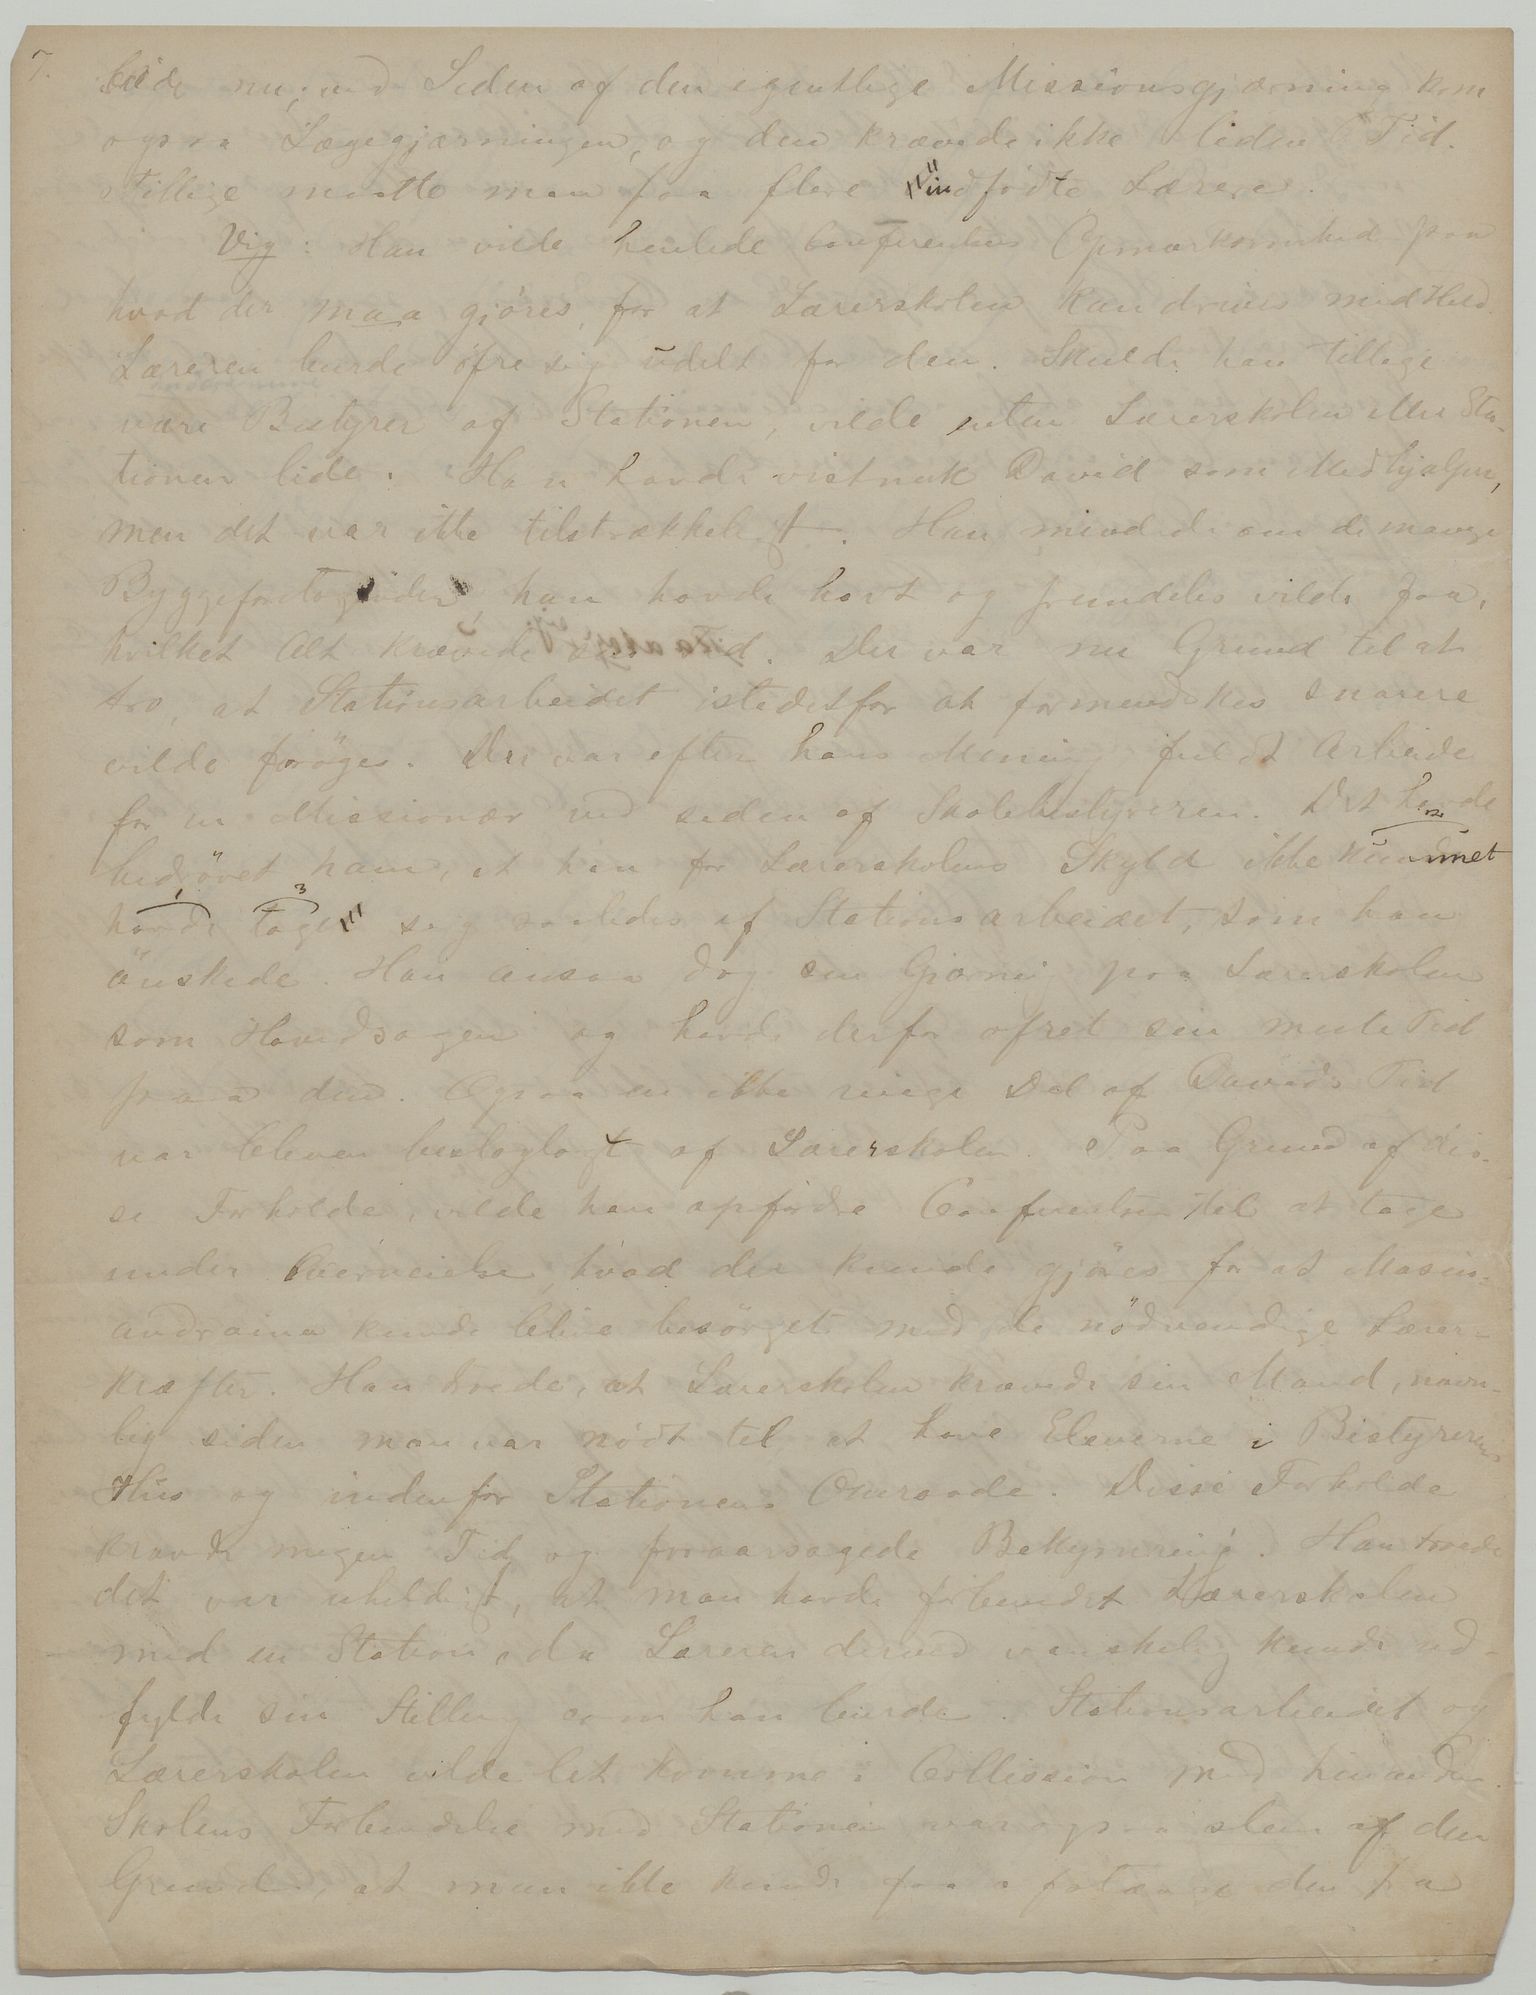 7.
beide nu; ved Siden af den egentlige Missionsgjærning kom
ogsaa Lægegjærningen, og den krævede ikke liden Tid.
Tillige maatte man faa flere indfödte Lærere.
Vig: Han vilde henlede Conferentsens Opmærksomhed paa
hvad der maa gjöres, for at Lærerskolen kan drives med Held.
Læreren burde ofre sig udelt for den. Skulde han tillige
være Bestyrer af Stationen, vilde enten Lærerskolen eller Sta-
tionen lide. Han havde vistnok David som Medhjælper,
men det var ikke tilstrækkeligt. Han mindede om de mange
Byggeforetagender, han havde havt og fremdeles vilde faa,
hvilket Alt krævede Tid. Der var nu Grund til at
tro, at Stationsarbeidet istedetfor at formindskes snarere
vilde foröges. Der var efter hans Mening fuldt Arbeide
for en Missionær ved siden af Skolebestyreren. Det havde
bedrövet ham, at han for Lærerskolens Skyld ikke kunnet
havde tage sig saaledes af Stationsarbeidet, som han
önskede. Han ansaa dog sin Gjærning paa Lærerskolen
som Hovedsagen og havde derfor ofret sin meste Tid
paa den. Ogsaa en ikke ringe Del af Davids Tid
var bleven beslaglagt af Lærerskolen. Paa Grund af dis-
se Forholde, vilde han opfordre Conferentsen til at tage
under Overveielse, hvad der kunde gjöres for at Masin-
andraina kunde blive besörget med de nödvendige Lærer-
kræfter. Han troede, at Lærerskolen krævede sin Mand, navn-
lig siden man var nödt til at have Eleverne i Bestyrerens
Hus og indenfor Stationens Omraade. Disse Forholde
krævde megen Tid og foraarsagede Bekymring. Han troede
det var uheldigt, at man havde forbundet Lærerskolen
med en Station, da Læreren derved vanskelig kunde ud-
fylde sin Stilling som han burde. Stationsarbeidet og
Lærerskolen vilde let komme i Collission med hinanden.
Skolens Forbindelse med Stationen var ogsaa slem af den
Grund, at man ikke kunde faa den fra